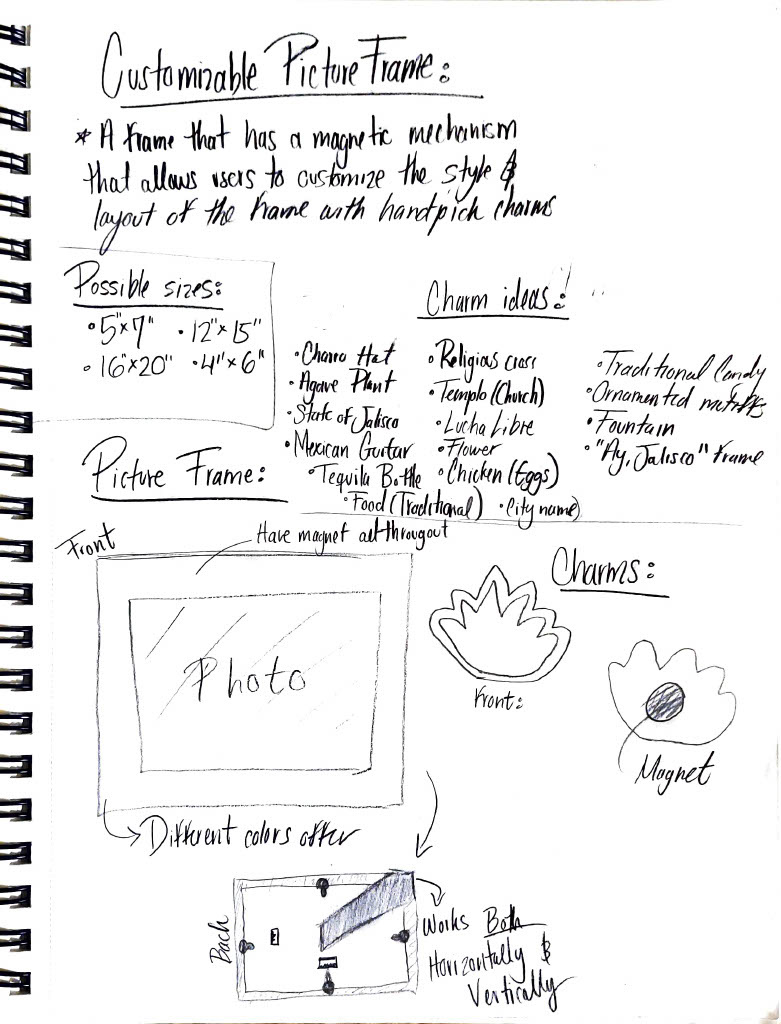 Customizable Picture Frame:
* A frame that has a magnetic mechanism
that allows users to customize the style &
layout of the frame with handpick charms
Possible sizes:
• 5"x7" • 12"x15"
• 16"x20" • 4"x6"
Charm ideas:
• Charro Hat
• Agave Plant
• State of Jalisco
• Mexican Guitar
• Tequila Bottle
• Food (Traditional)
• Religious cross
• Templo (Church)
• Lucha Libre
• Flower
• Chicken (Eggs)
• City name)
• Traditional Candy
• Ornamented
• Fountain
• "Ay, Jalisco" Frame
Picture Frame:
Front
Have magnet all througout
Photo
Different colors offer
Charms:
Front:
Magnet
Back
Works Both
Horizontally &
Vertically